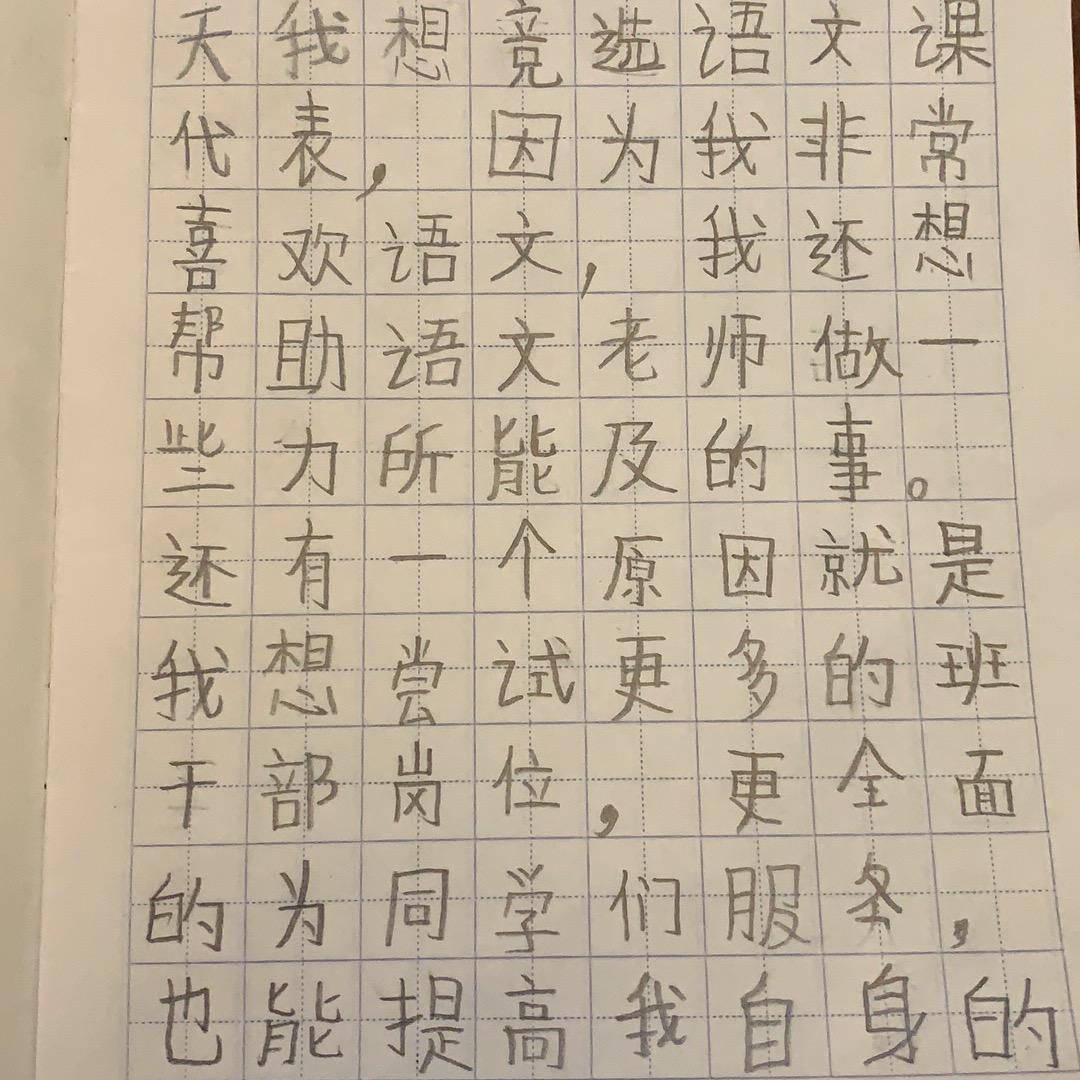 天我想竞选语文课
代表，因为我非常
喜欢语文，我还想
帮助语文老师做一
些力所能及的事。
还有一个原因就是
我想尝试更多的班
干部岗位，更全面
的为同学们服务，
也能提高我自身的